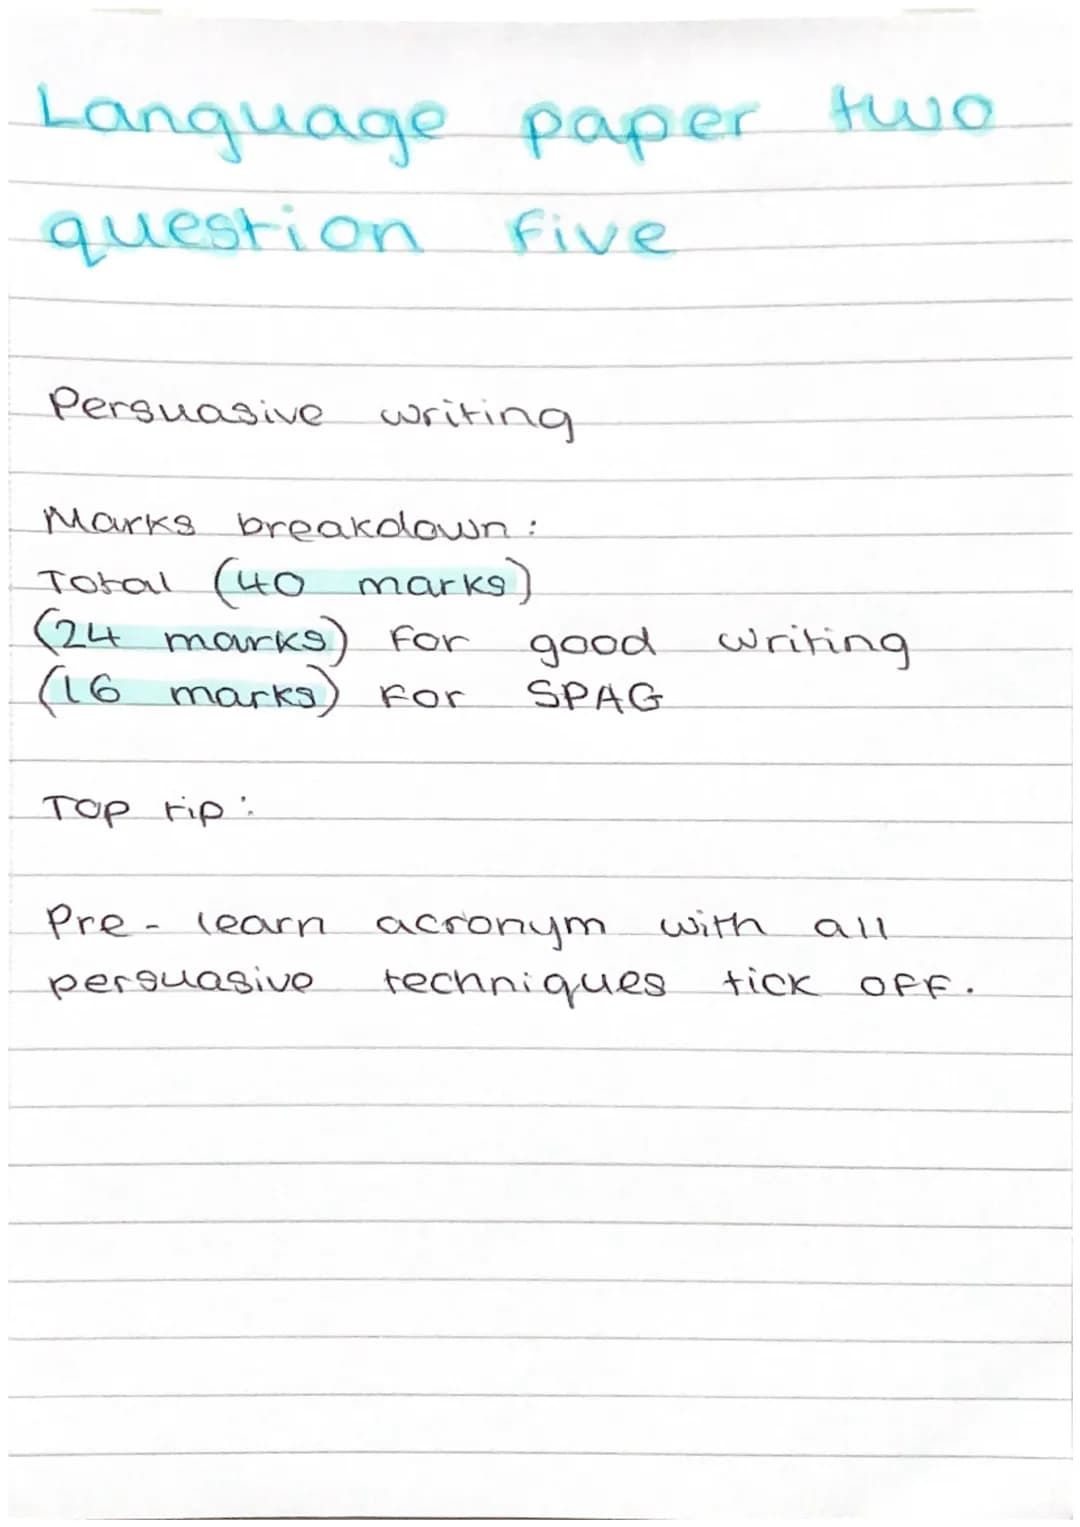 Language paper two
question five
Persuasive writing
Marks breakdown:
Total (40 marks)
(24 marks) for good writing
(16 marks) for SPAG
Top tip:
Pre-learn acronym with all
persuasive techniques tick off.